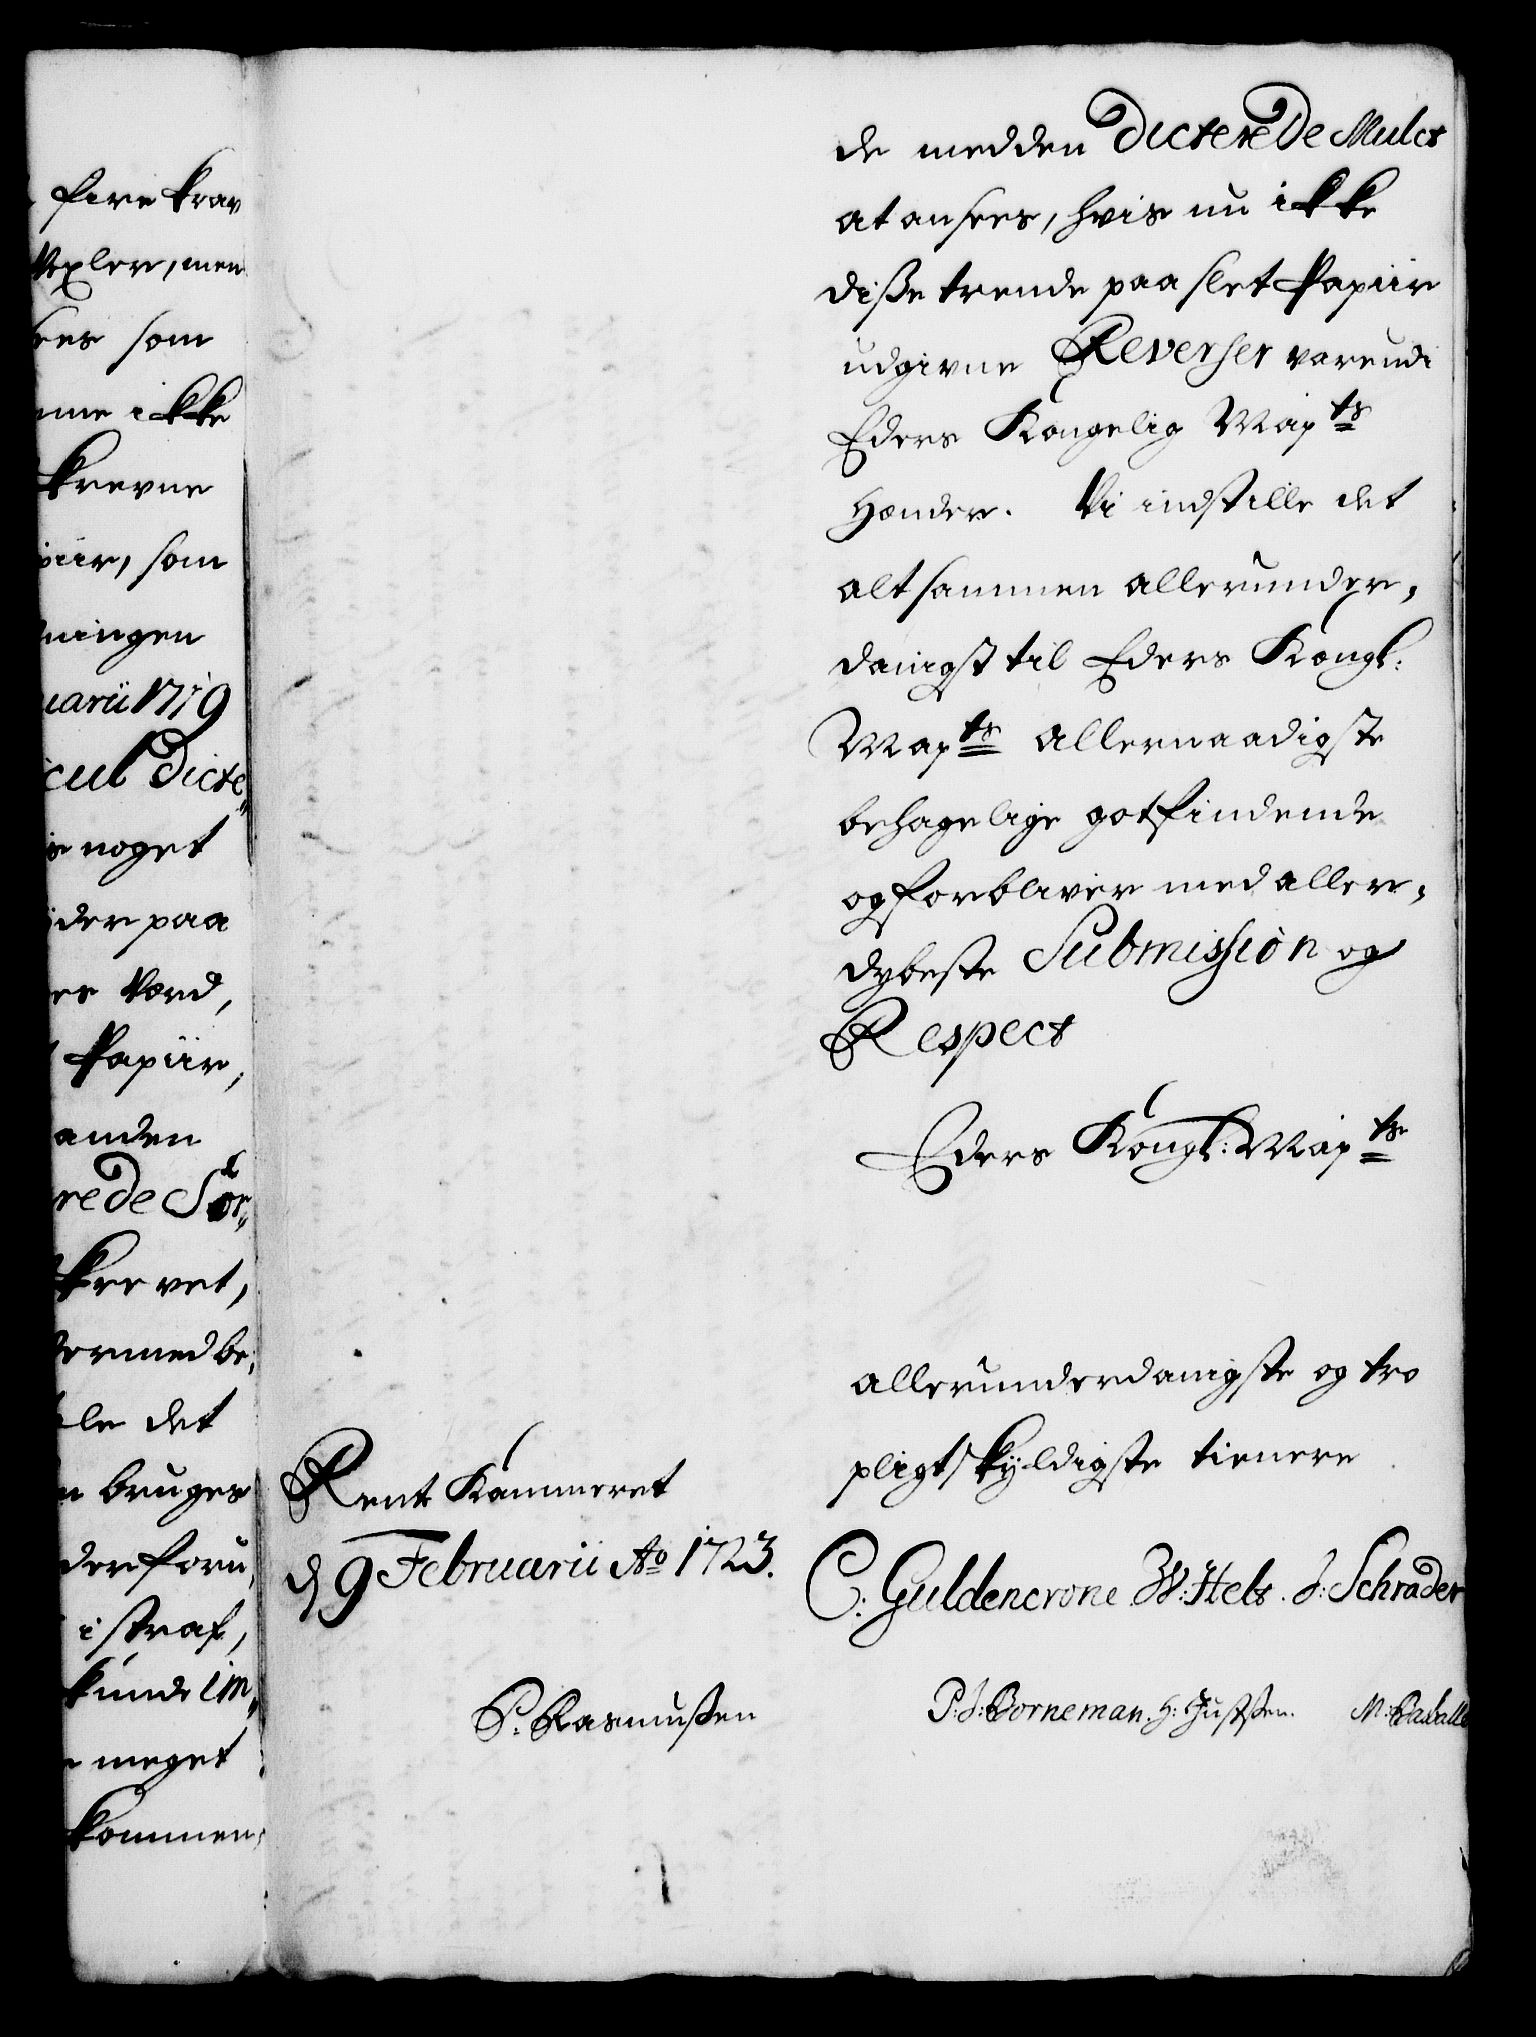 fire krav
Vexler, men
sees som
nne ikke
krevne
piir, som
ningen
uarii 1719
icul Dicte„
noget
ider paa
es Værd,
Papiir,
anden
rede Sor„
krevet,
ermed be„
le det
n bruges
der foru„
i straf,
kunde im„
meget
kommen„
de med den Dicterede Mulct
at ansees, hvis nu ikke
diße trende paa slet Papiir
udgivne Reverser var udi
Eders Kongelig Mayts
Hænder. Vi indstille det
alt sammen allerunder„
danigst til Eders Kongl:
Mayts allernaadigste
behagelige gotfindende
og forbliver med aller„
dybeste Submission og
Respect
Eders Kongl: Mayts
allerunderdanigste og tro
pligtskyldigste tienere
Rent Kammeret
d 9 Februarii Ao 1723.
C: Guldencrone W: Hels. J: Schrader
S: Rasmußen
P: J: Borneman. H: Justßen. M: Raballe